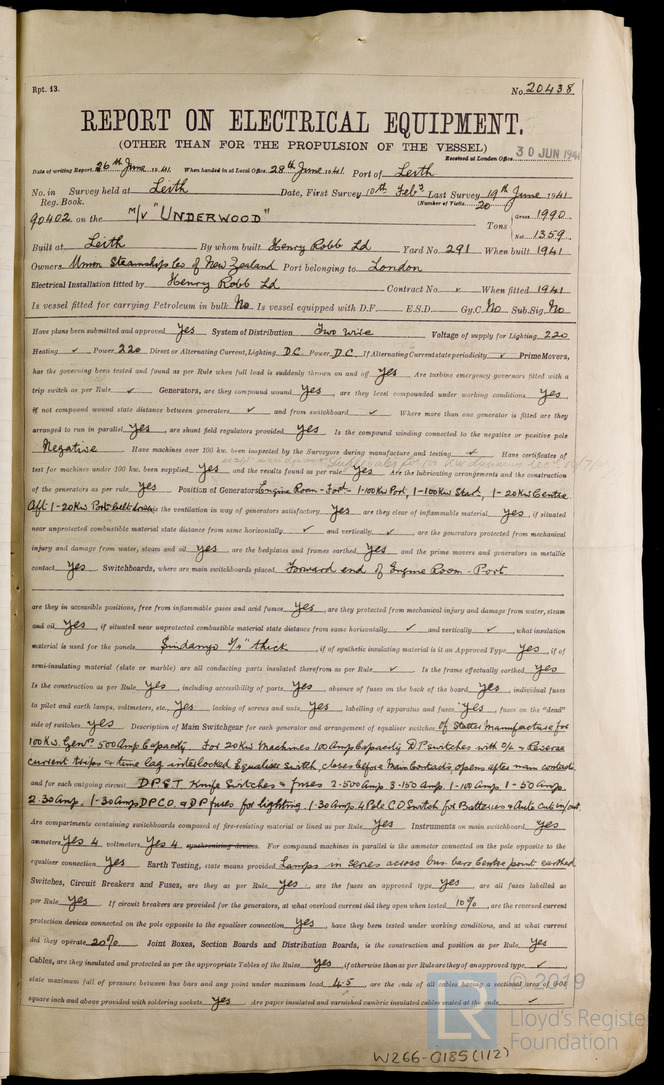 Rpt. 13. No. 20438
REPORT ON ELECTRICAL EQUIPMENT.
(OTHER THAN FOR THE PROPULSION OF THE VESSEL)
Received at London Office 30 JUN 1941
Date of writing Report 26th June 1941. When handed in at Local Office 28th June 1941 Port of Leith
No. in Survey held at Leith Date, First Survey 10th Feby Last Survey 19th June 1941
Reg. Book. (Number of Visits 20)
90402 on the M/V "UNDERWOOD" Tons Gross 1990 Net 1359
Built at Leith By whom built Henry Robb Ld Yard No. 291 When built 1941
Owners Union Steamship Co of New Zealand Port belonging to London
Electrical Installation fitted by Henry Robb Ld Contract No. ✓ When fitted 1941
Is vessel fitted for carrying Petroleum in bulk No Is vessel equipped with D.F. E.S.D. Gy.C. No Sub.Sig. No
Have plans been submitted and approved Yes System of Distribution Two wire Voltage of supply for Lighting 220
Heating ✓ Power 220 Direct or Alternating Current, Lighting D.C. Power D.C. If Alternating Current state periodicity ✓ Prime Movers,
has the governing been tested and found as per Rule when full load is suddenly thrown on and off Yes Are turbine emergency governors fitted with a
trip switch as per Rule ✓ Generators, are they compound wound Yes, are they level compounded under working conditions Yes,
if not compound wound state distance between generators ✓ and from switchboard ✓ Where more than one generator is fitted are they
arranged to run in parallel Yes, are shunt field regulators provided Yes Is the compound winding connected to the negative or positive pole
Negative Have machines over 100 kw. been inspected by the Surveyors during manufacture and testing ✓ Have certificates of
test for machines under 100 kw. been supplied Yes and the results found as per rule Yes Are the lubricating arrangements and the construction
of the generators as per rule Yes Position of Generators Engine Room - Ford - 1-100Kw Port, 1-100Kw Starb, 1-20Kw Centre
Aft 1-20Kw Port Belt driven is the ventilation in way of generators satisfactory Yes are they clear of inflammable material Yes, if situated
near unprotected combustible material state distance from same horizontally ✓ and vertically ✓, are the generators protected from mechanical
injury and damage from water, steam and oil Yes are the bedplates and frames earthed Yes and the prime movers and generators in metallic
contact Yes Switchboards, where are main switchboards placed Forward end of Engine Room - Port
are they in accessible positions, free from inflammable gases and acid fumes Yes, are they protected from mechanical injury and damage from water, steam
and oil Yes, if situated near unprotected combustible material state distance from same horizontally ✓ and vertically ✓, what insulation
material is used for the panels Sindanyo 3/4" thick, if of synthetic insulating material is it an Approved Type Yes, if of
semi-insulating material (slate or marble) are all conducting parts insulated therefrom as per Rule ✓ Is the frame effectually earthed Yes
Is the construction as per Rule Yes, including accessibility of parts Yes, absence of fuses on the back of the board Yes, individual fuses
to pilot and earth lamps, voltmeters, etc. Yes, locking of screws and nuts Yes, labelling of apparatus and fuses Yes, fuses on the "dead"
side of switches Yes Description of Main Switchgear for each generator and arrangement of equaliser switches Of Statter Manufacture for
100Kw. Genrs 500 Amp Capacity For 20Kw Machines 100 Amp Capacity D P Switches with O/L & Reverse
current trips & time lag interlocked Equaliser Switch, closes before Main Contacts, opens after main contacts
and for each outgoing circuit D.P.S.T. Knife Switches & fuses 2-500 Amp. 3-150 Amp. 1-100 Amp. 1-50 Amp.
2-30 Amp. 1-30 Amp D P C O. & D P fuses for lighting. 1-30 Amp. 4 Pole C O Switch for Batteries & Auto Cut in/out.
Are compartments containing switchboards composed of fire-resisting material or lined as per Rule Yes Instruments on main switchboard Yes
ammeters Yes 4 voltmeters Yes 4 synchronising devices. For compound machines in parallel is the ammeter connected on the pole opposite to the
equaliser connection Yes Earth Testing, state means provided Lamps in series across bus bars Centre point earthed
Switches, Circuit Breakers and Fuses, are they as per Rule Yes, are the fuses an approved type Yes, are all fuses labelled as
per Rule Yes If circuit breakers are provided for the generators, at what overload current did they open when tested 10%, are the reversed current
protection devices connected on the pole opposite to the equaliser connection Yes, have they been tested under working conditions, and at what current
did they operate 20% Joint Boxes, Section Boards and Distribution Boards, is the construction and position as per Rule Yes
Cables, are they insulated and protected as per the appropriate Tables of the Rules Yes, if otherwise than as per Rule are they of an approved type ✓,
state maximum fall of pressure between bus bars and any point under maximum load 4.5, are the ends of all cables having a sectional area of 0.01
square inch and above provided with soldering sockets Yes Are paper insulated and varnished cambric insulated cables sealed at the ends ✓
© 2019
LR
Lloyd's Register
Foundation
W266-0185(1/2)